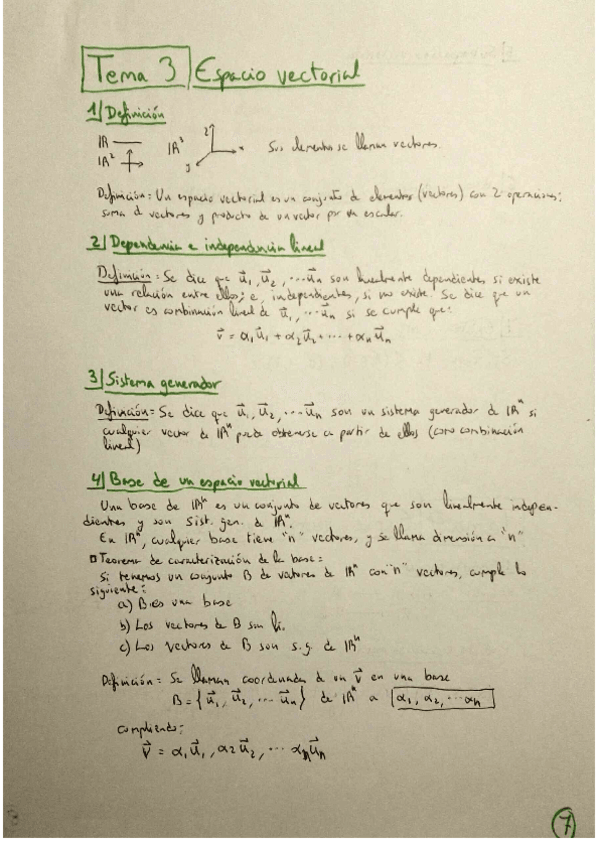 Tema 3 Espacio vectorial
1) Definición
IR
IR² IR³ z x y Sus elementos se llaman vectores.
Definición: Un espacio vectorial es un conjunto de elementos (vectores) con 2 operaciones:
suma d vectores y producto de un vector por un escalar.
2) Dependencia e independencia lineal
Definición: Se dice que u⃗₁, u⃗₂, ... u⃗n son linealmente dependientes si existe
una relación entre ellos; e, independientes, si no existe. Se dice que un
vector es combinación lineal de u⃗₁, ... u⃗n si se cumple que:
v⃗ = α₁u⃗₁ + α₂u⃗₂ + ... + αnu⃗n
3) Sistema generador
Definición: Se dice que u⃗₁, u⃗₂, ... u⃗n son un sistema generador de IRⁿ si
cualquier vector de IRⁿ puede obtenerse a partir de ellos (como combinación
lineal)
4) Base de un espacio vectorial
Una base de IRⁿ es un conjunto de vectores que son linealmente indepen-
dientes y son sist. gen. d IRⁿ.
En IRⁿ, cualquier base tiene "n" vectores, y se llama dimensión a "n"
Teorema de caracterización de la base:
Si tenemos un conjunto B de vectores de IRⁿ con "n" vectores, cumple lo
siguiente:
a) B es una base
b) Los vectores de B son l.i.
c) Los vectores de B son s.g. de IRⁿ
Definición: Se llaman coordenadas de un v⃗ en una base
B = {u⃗₁, u⃗₂, ... u⃗n} de IRⁿ a α₁, α₂, ... αn
cumpliendo:
v⃗ = α₁u⃗₁, α2u⃗₂, ... αnu⃗n
7